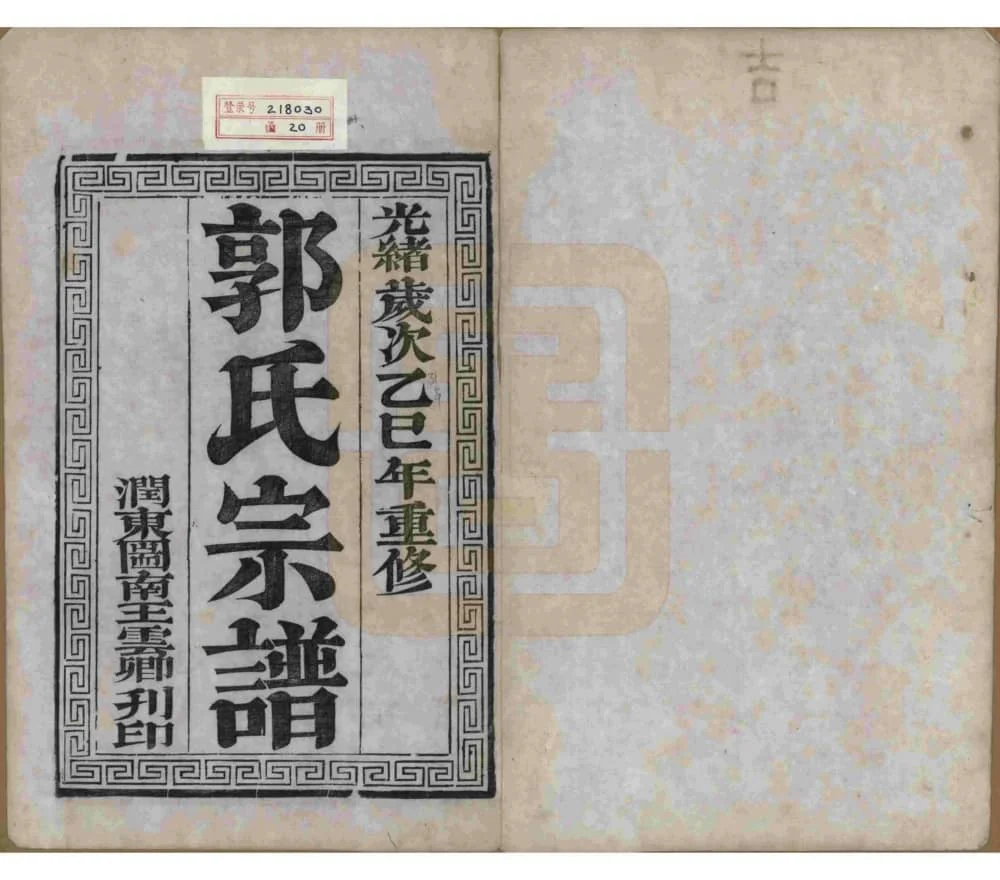 登录号 218030
函 20 册
光緒歲次乙巳年重修
郭氏宗譜
潤東圌南王雲卿刊印
吉